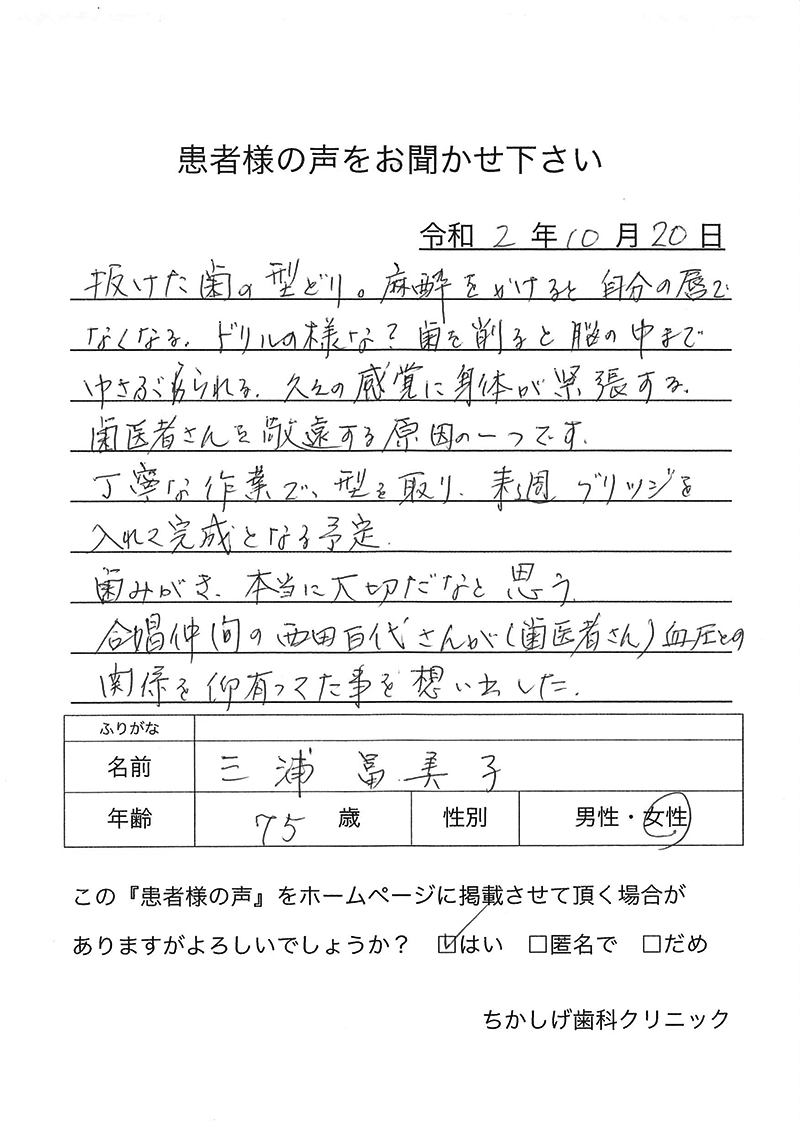 患者様の声をお聞かせ下さい
令和 2 年 10 月 20 日
抜けた歯の型どり。麻酔をかけると自分の唇で
なくなる。ドリルの様な？歯を削ると脳の中まで
ゆさぶられる。久々の感覚に身体が緊張する。
歯医者さんを敬遠する原因の一つです。
丁寧な作業で、型を取り、来週ブリッジを
入れて完成となる予定。
歯みがき、本当に大切だなと思う。
合唱仲間の西田百代さんが（歯医者さん）血圧との
関係を仰有ってた事を想い出した。
ふりがな
名前 三浦 冨美子
年齢 75 歳 性別 男性・女性
この『患者様の声』をホームページに掲載させて頂く場合が
ありますがよろしいでしょうか？ ☑はい □匿名で □だめ
ちかしげ歯科クリニック